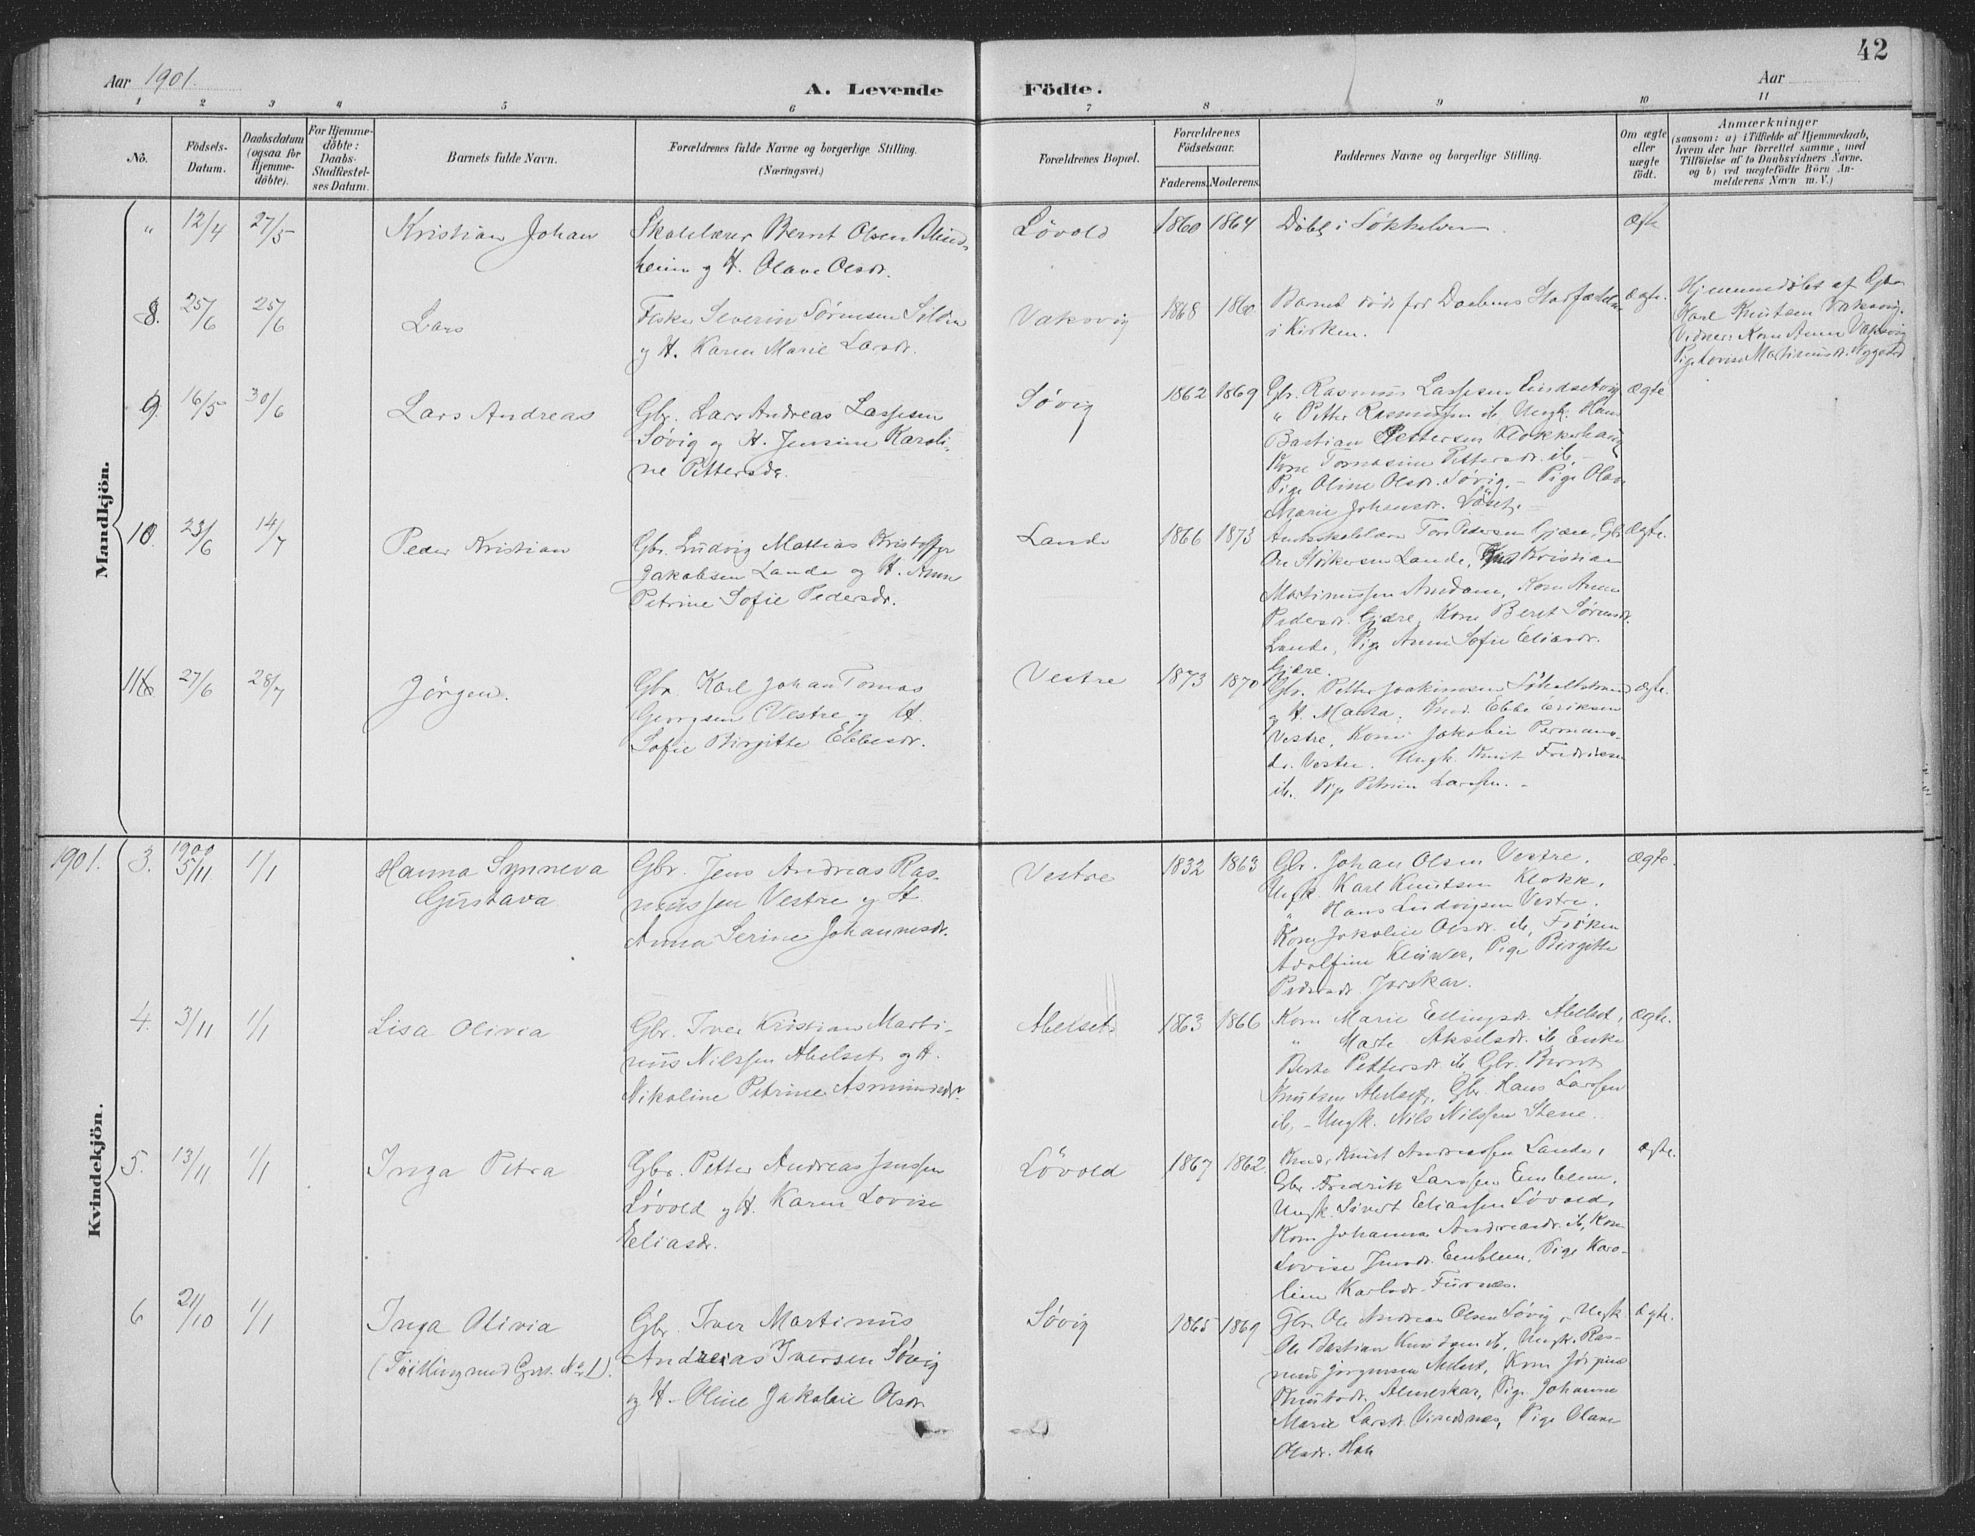 42
Aar 1901.
A. Levende Födte.
Aar
1 2 3 4 5 6 7 8 9 10 11
No.
Födsels-
Datum.
Daabsdatum
(ogsaa for
Hjemme-
döbte).
For Hjemme-
döbte:
Daabs-
Stadfæstel-
ses Datum.
Barnets fulde Navn.
Forældrenes fulde Navne og borgerlige Stilling.
(Næringsvei.)
Forældrenes Bopæl.
Forældrenes
Födselsaar.
Faderens. Moderens.
Faddernes Navne og borgerlige Stilling.
Om ægte
eller
uægte
födt.
Anmærkninger
(saasom: a) i Tilfælde af Hjemmedaab,
hvem der har forrettet samme, med
Tilföielse af to Daabsvidners Navne.
og b) ved uægtefödte Börn An-
melderens Navn m. V.)
Mandkjön.
" 12/4 27/5 Kristian Johan
Skolelærer Bernt Olsen Blind-
heim og H. Olave Olsdr.
Løvold 1860 1864
Döbt i Søkkelven.
ægte
8. 25/6 25/6 Lars
Fisker Severin Sørensen
og H. Karen Marie Larsdr.
Vaksvig 1868 1860
Barnet døde før Daabens Stadfæstelse
i Kirken.
ægte.
Hjemmedöbt af Gbr.
Karl Knutsen Vaksvig.
Vidner: Kone Anne Vaksvig
9. 16/5 30/6 Lars Andreas
Gbr. Lars Andreas Lassesen
Søvig og H. Jensine Karoli-
ne Pettersdr.
Søvig 1862 1869
Gbr. Rasmus Lassesen
" Petter Rasmussen ib. Ungk. Hans
Bastian Pettersen Klokkerhaug
Kone Tomasine Pettersdr. ib. -
Pige Oline Olsdr. Søvig. - Pige Olave
Marie Johansdr.
ægte
10. 23/6 14/7 Peder Kristian
Gbr. Ludvig Mattias Kristoffer
Jakobsen Lande og H. Anne
Petrine Sofie Pedersdr.
Lande 1866 1873
Pedersen Gjære, Gbr.
Lande, Kristian
Martinussen Amdam, Kone Anne
Pedersdr. Gjære, Kone Beret Sørensdr.
Lande, Pige Anne Sofie Eliasdr.
Gjære.
Ægte.
11 27/6 28/7 Jørgen.
Gbr. Karl Johan Tomas
Georgsen Vestre og H.
Sofie Birgitte Ebbesdr.
Vestre 1873 1870
Gbr. Petter Joakimsen Søholtstrand
og H. Marta. Ebbe Eriksen
Vestre, Kone Jakobie Permans-
dr. Vestre. Ungk. Knut Fredriksen
ib. Pige Petrine Larssen. -
ægte.
Kvindekjön.
1901. 3. 1900 5/11 1/1 Hanna Synneva
Gustava
Gbr. Jens Andreas Ras-
mussen Vestre og H.
Anna Serine Johannesdr.
Vestre 1832 1863
Gbr. Johan Olsen Vestre.
Ungk. Karl Knutsen Klokk.
" Hans Ludvigsen Vestre.
Kone Jakobie Olsdr. ib. Frøken
Adolfine Klüwer, Pige Birgitte
Pedersdr. Jarskar.
Ægte.
4. 3/11 1/1 Lisa Olivia
Gbr. Iver Kristian Marti-
nus Nilssen Abelset og H.
Nikoline Petrine Asmundsdr.
Abelset 1863 1866
Kone Marie Ellingsdr. Abelset,
" Marte Akselsdr. ib. Enke
Berte Pettersdr. ib. Gbr. Bernt
Knutsen Abelset, Gbr. Hans Larssen
ib. - Ungk. Nils Nilssen Stene.
Ægte.
5. 13/11 1/1 Inga Petra
Gbr. Petter Andreas Jenssen
Løvold og H. Karen Lovise
Eliasdr.
Løvold 1867 1862
Knut Andreassen Lande,
Gbr. Fredrik Larssen Emblem,
Ungk. Sivert Eliassen Løvold,
Kone Johanna Andreasdr. ib. Kone
Lovise Jensdr. Emblem, Pige Karo-
line Karlsdr. Furnæs.
ægte.
6 21/10 1/1 Inga Olivia
(Tvilling med Gut No 1).
Gbr. Iver Martinus
Andreas Iversen Søvig
og H. Oline Jakobie Olsdr.
Søvig 1865 1869
Gbr. Ole Andreas Olsen Søvig, Ungk.
Ole Bastian Knudsen ib, Ungk. Ras-
mus Jørgensen Abelset, Kone Jørgine
Knutsdr. Almeskar, Pige Johanne
Marie Larsdr. Vinsdnes, Pige Olave
Olsdr.
ægte.